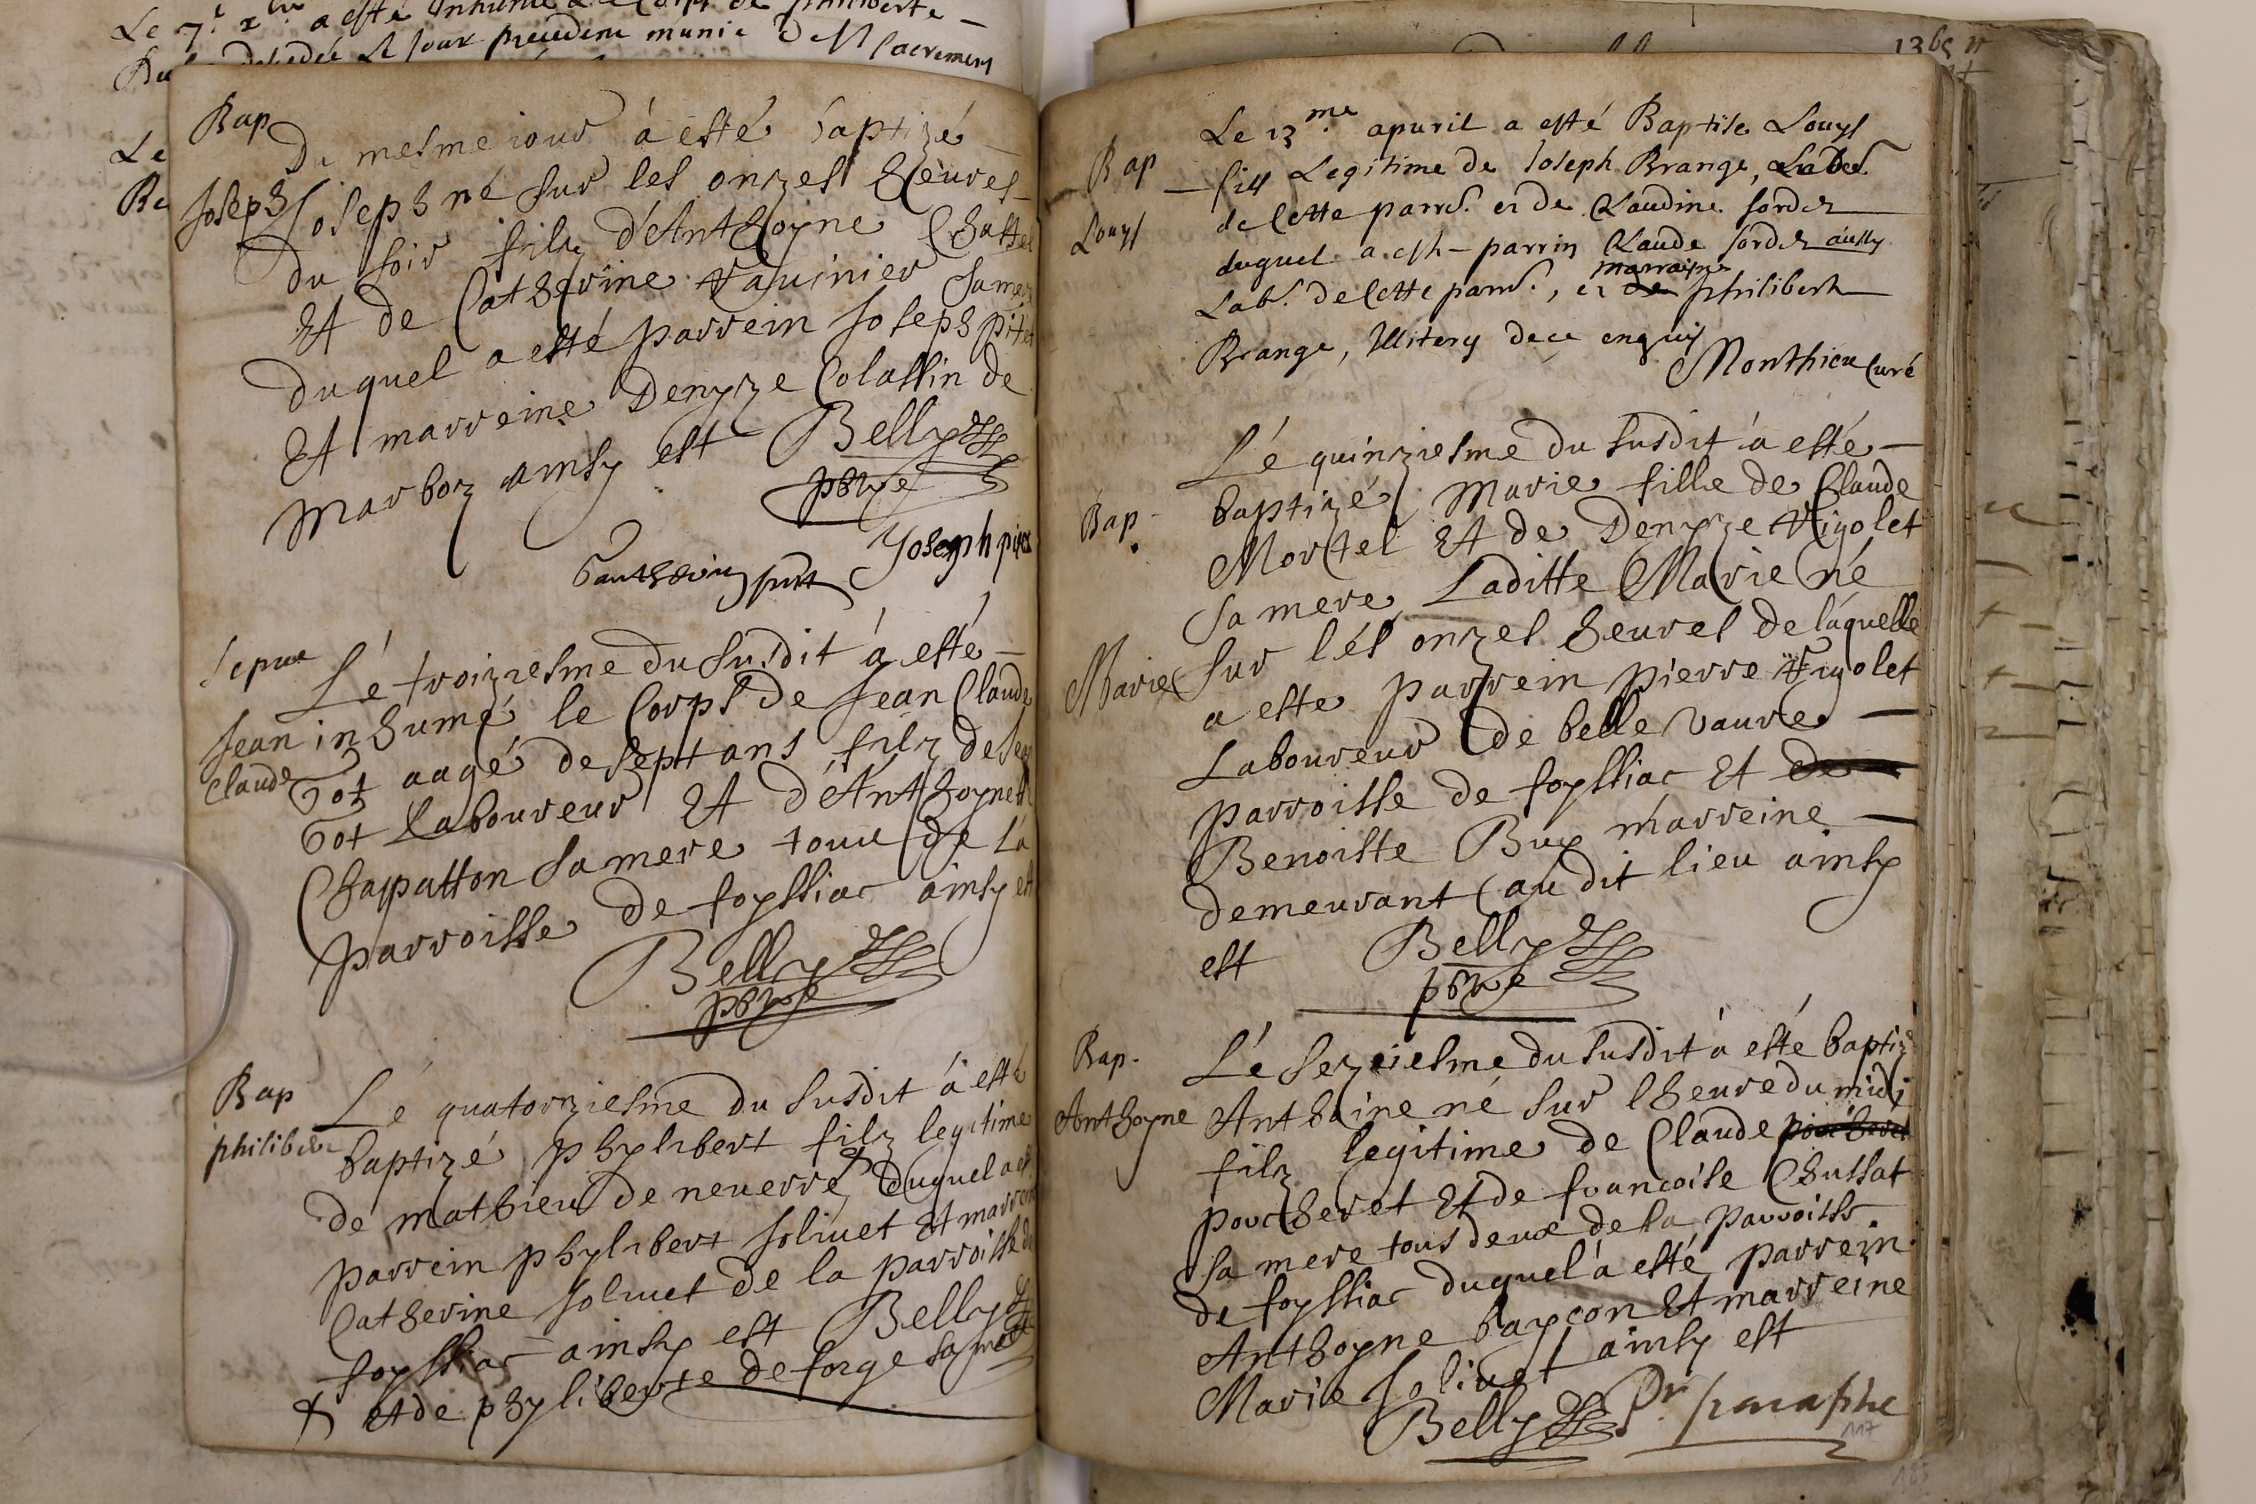 Le 7.e x.bre a esté inhumé le Corps de philiberte
decedée le jour precedent munie des sacremens
Le
Bap
Du mesme iour à esté baptizé
Joseph Joseph né sur les onzes heures
du soir filz d'Anthoyne Chattel
Et de Catherine Vauinier sa mere
duquel a esté parrein Joseph pitet
Et marreine Denyze Colassin de
Marboz ainsy est Belly
pbre
Joseph
Sepue Lé troiziesme du susdit à esté
Jean inhumé le Corps de Jean Claude
Claude Got aagé de sept ans filz de
Got Laboureur Et d'Anthoynett
Chapatton sa mere tous de la
parroisse de foyssiac ainsy est
Belly
pbre
Bap Lé quatorziesme du susdit à esté
philibert baptizé phylibert filz legitime
de mathieu de neuerre duquel a
parrein phylibert soliuet Et marreine
Catherine soliuet de la parroisse de
foyssiac ainsy est Belly
Et de phyliberte deforge sa mere
1365
Bap Le 13.me apuril a esté Baptise Louys
fils Legitime de Joseph Brange, Lab.r
Louys de Cette parr.s. et de Claudine sordet
duquel a esté parrin Claude sordet aussy
Lab.r de Cette parr.s., et de marraine philiberte
Brange, de ce enquis
Monthieu Curé
Lé quinziesme du susdit à esté
Bap. baptizé Marie fille de Claude
Mortel Et de Denyze Vigolet
sa mere Laditte Marie né
Marie sur lés onzes heures de laquelle
a este parrein pierre Vigolet
Laboureur de belle vaure
parroisse de foyssiac Et de
Benoiste Buy marreine
demeurant au dit lieu ainsy
est Belly
pbre
Bap. Lé sezeiesme du susdit à esté baptiz
Anthoyne Anthoine né sur lheure du midi
filz legitime de Claude poucheret
poucheret Et de francoise Chussat
sa mere tous deux de la parroisse
de foyssiac duquel à esté parrein
Anthoyne bayçon Et marreine
Marie Soliuet ainsy est
Belly Pr paraphe
117